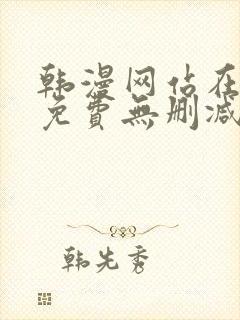 韩漫网站在
免費無删减
韩先秀